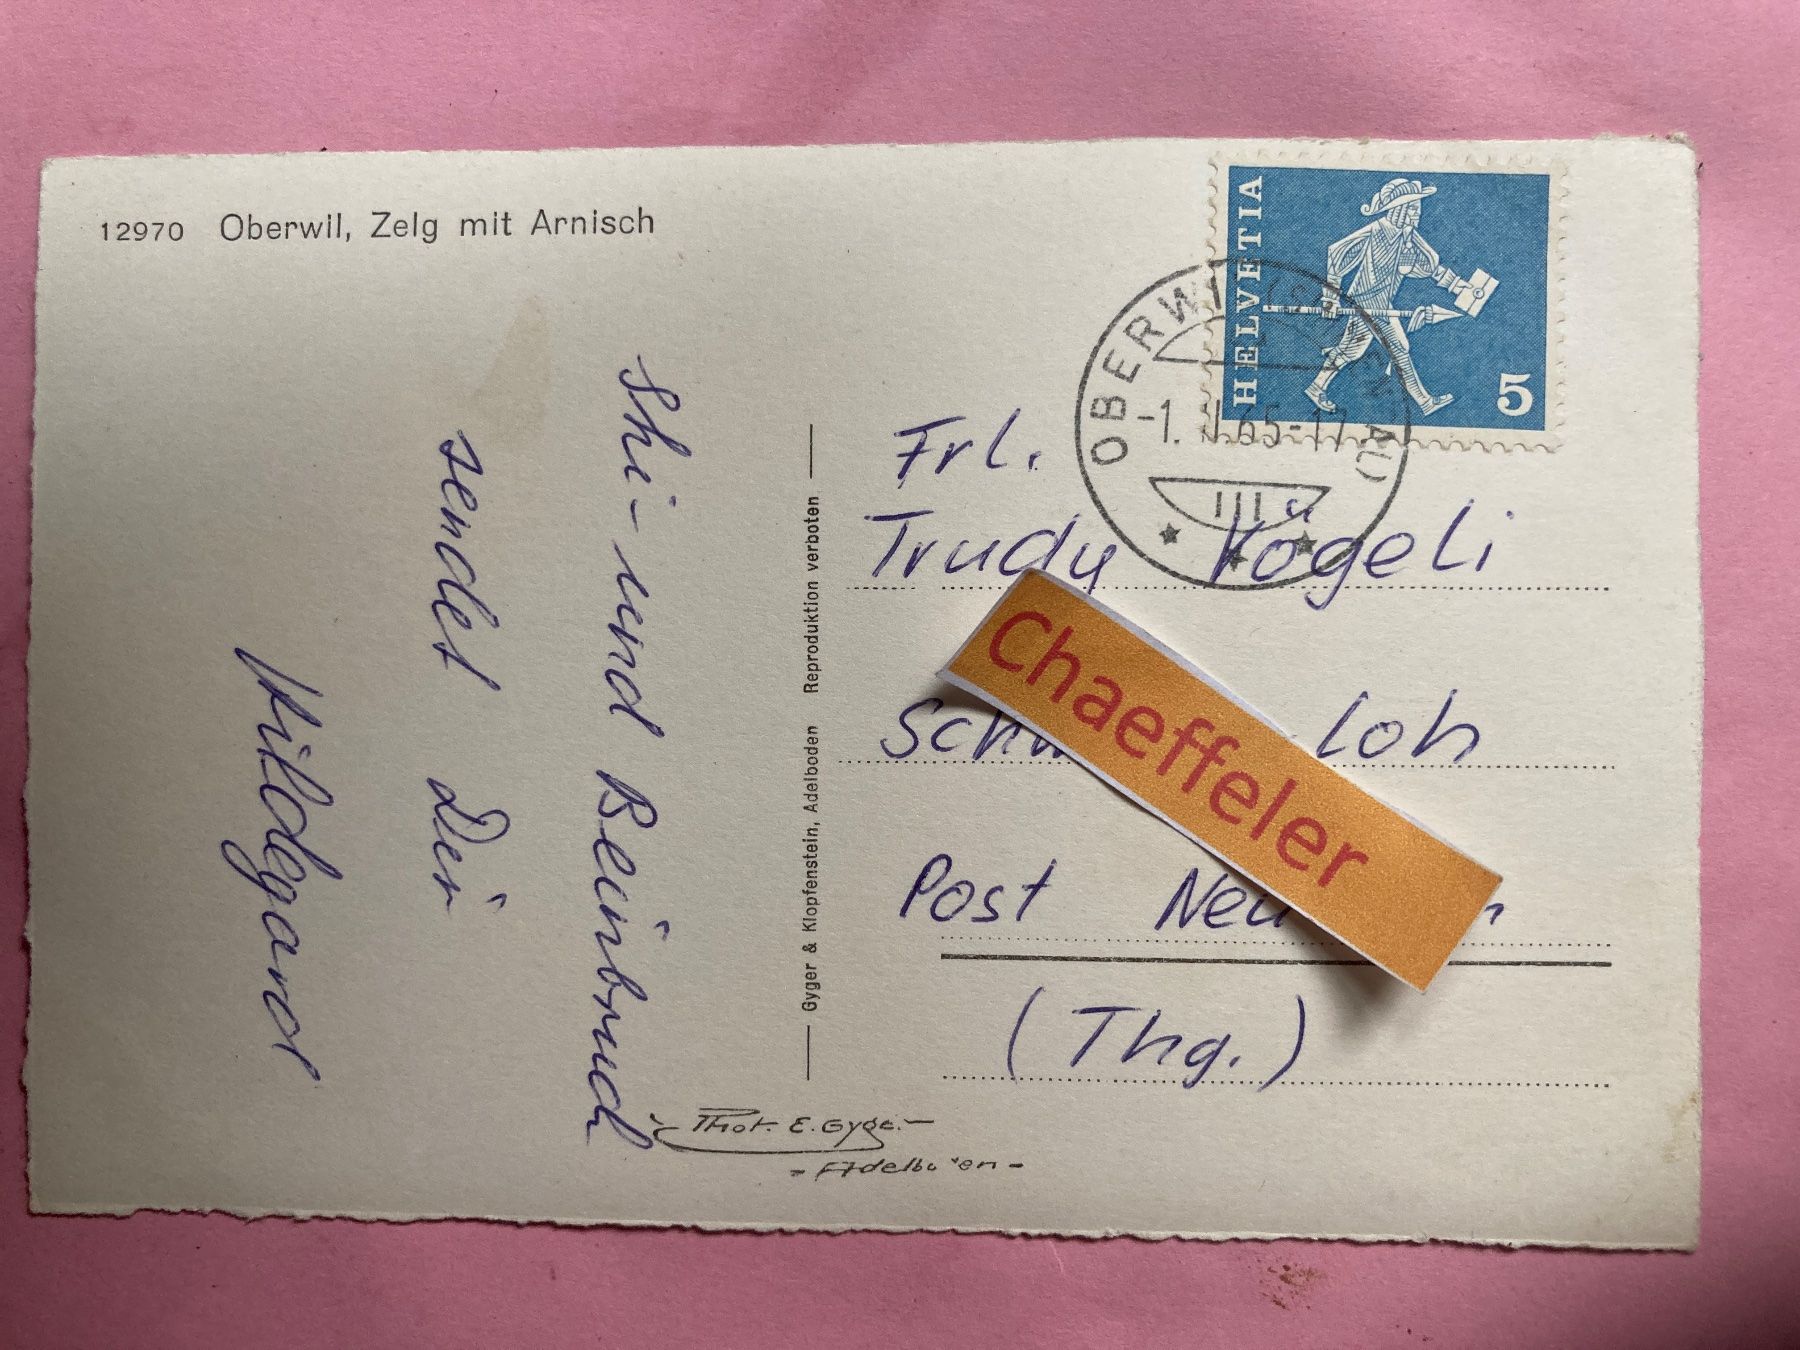 12970 Oberwil, Zelg mit Arnisch
Shi- und Beinbruch
sendet Dir
Hildegard
Gyger & Klopfenstein, Adelboden Reproduktion verboten
Phot. E. Gyger
- Adelboden -
HELVETIA
5
OBERWIL (SIMMENTAL)
-1. 65-17
Frl.
Trudy Vögeli
Chaeffeler
loh
Post
(Thg.)